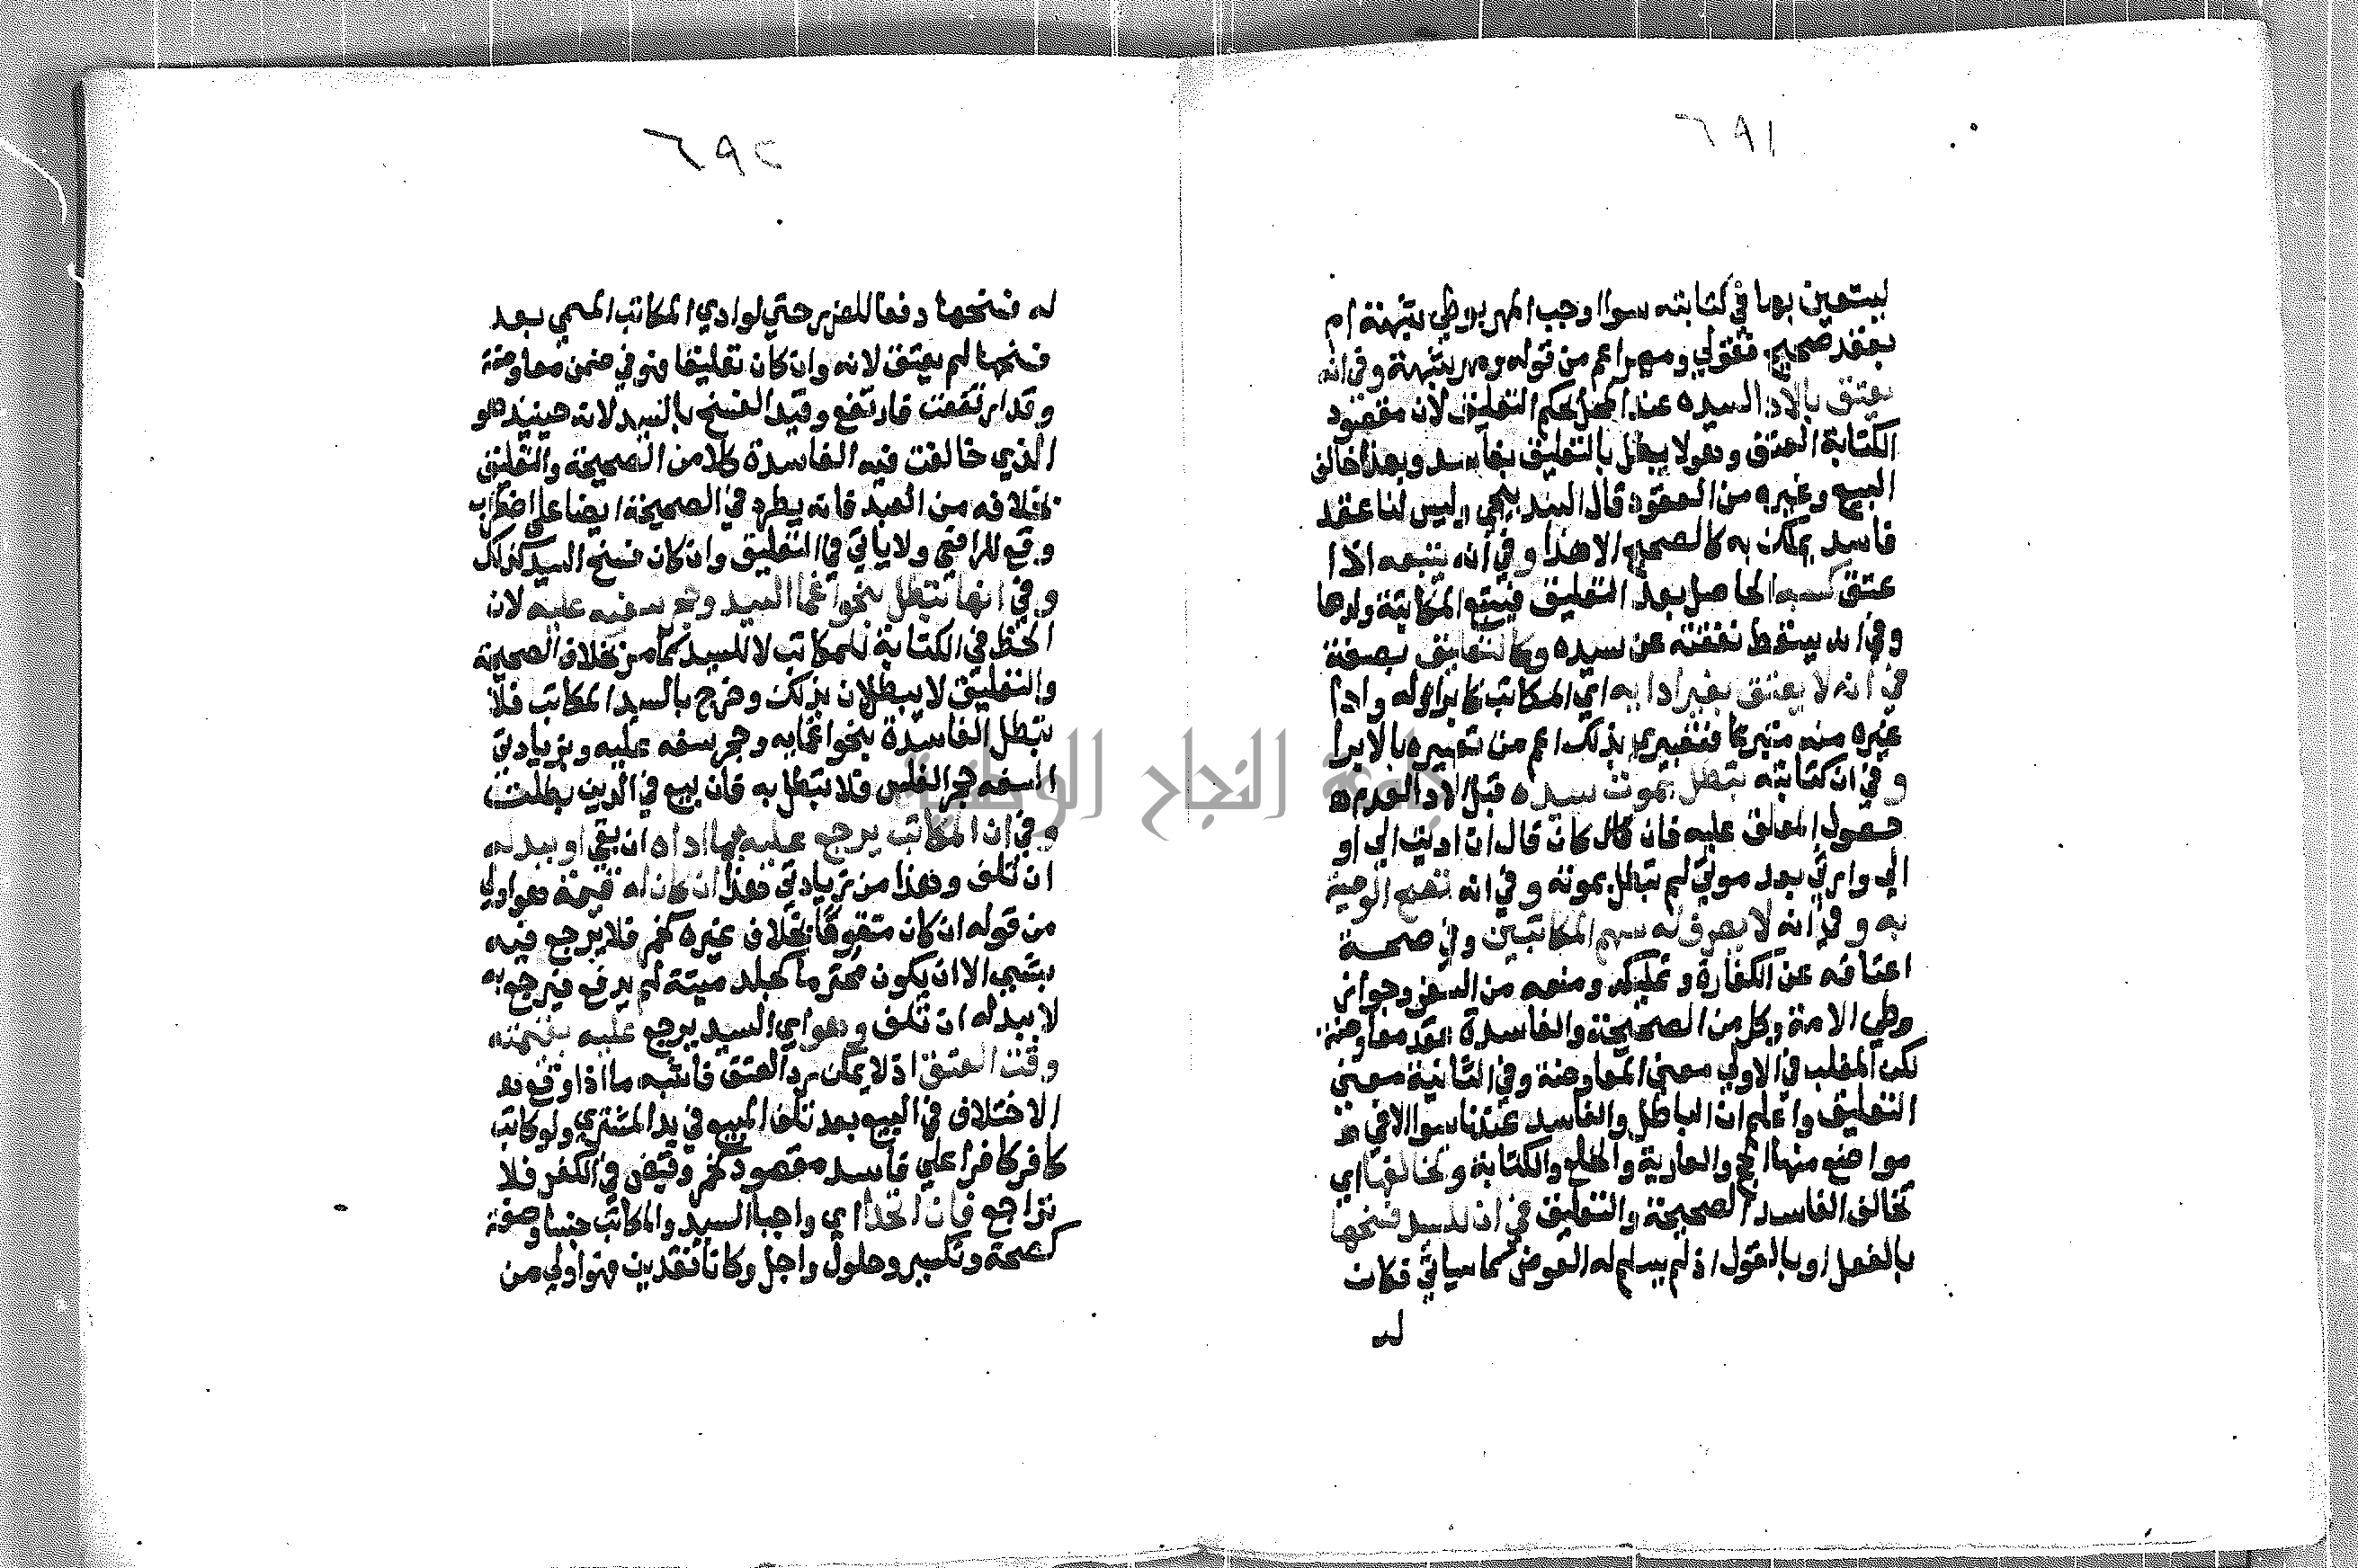 ٦٩١
ليستعين بها في كتابته سوا اوجب المهر بوطي بشبهة ام
بعقد صحيح فقولي ومهر اعم من قوله ومهر بشبهة وفي انه
يعتق بالادا لسيده عند المحل بحكم التعليق لان مقصود
الكتابة العتق وهو لا يبطل بالتعليق بفاسد وبهذا خالف
البيع وغيره من العقود قال البندنيجي وليس لنا عقد
فاسد يملك به كالصحيح الا هذا وفي انه يتبعه اذا
عتق كسبه الحاصل بعد التعليق فيتبع المكاتبة ولدها
وفي انه يسقط نفقته عن سيده وكالتعليق بصفة
في انه لا يعتق بغير ادايه اي المكاتب كابرايه له وادا
غيره عنه متبرعا فتعبيري بذلك اعم من تعبيره بالابرا
وفي ان كتابته تبطل بموت سيده قبل الادا لعدم
حصول المعلق عليه فان كان قال ان اديت الي او
الي وارثي بعد موتي لم تبطل بموته وفي انه تصح الوصية
به وفي انه لا يصرف له سهم المكاتبين وفي صحة
اعتاقه عن الكفارة وتمليكه ومنعه من السفر وجواز
وطي الامة وكل من الصحيحة والفاسدة عقد معاوضة
لكن المغلب في الاولي معني المعاوضة وفي الثانية معني
التعليق واعلم ان الباطل والفاسد عندنا سوا الا في
مواضع منها الحج والعارية والخلع والكتابة وتخالفها اي
تخالف الفاسدة الصحيحة والتعليق في ان للسيد فسخها
بالفعل او بالقول اذ لم يسلم له العوض كما سياتي فكان
له
٦٩٢
له فسخها دفعا للضرر حتي لو ادي المكاتب المسمي بعد
فسخها لم يعتق لانه وان كان تعليقا فهو في ضمن معاوضة
وقد ارتفعت فارتفع وقيد الفسخ بالسيد لانه حينيذ هو
الذي خالفت فيه الفاسدة كلا من الصحيحة والتعليق
بخلافه من العبد فانه يطرد في الصحيحة ايضا علي اضطراب
وقع للرافعي ولا ياتي في التعليق وان كان فسخ السيد كذلك
وفي انها تبطل بنحو اغما السيد وحجر سفه عليه لان
الحظ في الكتابة للمكاتب لا للسيد كما مر بخلاف الصحيحة
والتعليق لا يبطلان بذلك وخرج بالسيد المكاتب فلا
تبطل الفاسدة بنحو اغمايه وحجر سفه عليه وبزيادتي
السفه حجر الفلس فلا تبطل به فان بيع في الدين بطلت
وفي ان المكاتب يرجع عليه بما اداه ان بقي او ببدله
ان تلف وهذا من زيادتي هذا ان كان له قيمة هو اولي
من قوله ان كان متقوما بخلاف غيره كخمر فلا يرجع فيه
بشي الا ان يكون محترما كجلد ميتة لم يدبغ فيرجع به
لا ببدله ان تلف وهو اي السيد يرجع عليه بقيمته
وقت العتق اذ لا يمكن رد العتق فاشبه ما اذا وقع
الاختلاف في البيع بعد تلف المبيع في يد المشتري ولو كاتب
كافر كافرا علي فاسد مقصود كخمر وقبض في الكفر فلا
تراجع فان اتحدا اي واجبا السيد والمكاتب جنسا وصفة
كصحة وتكسير وحلول واجل وكانا نقدين فهو اولي من
جامعة النجاح الوطنية